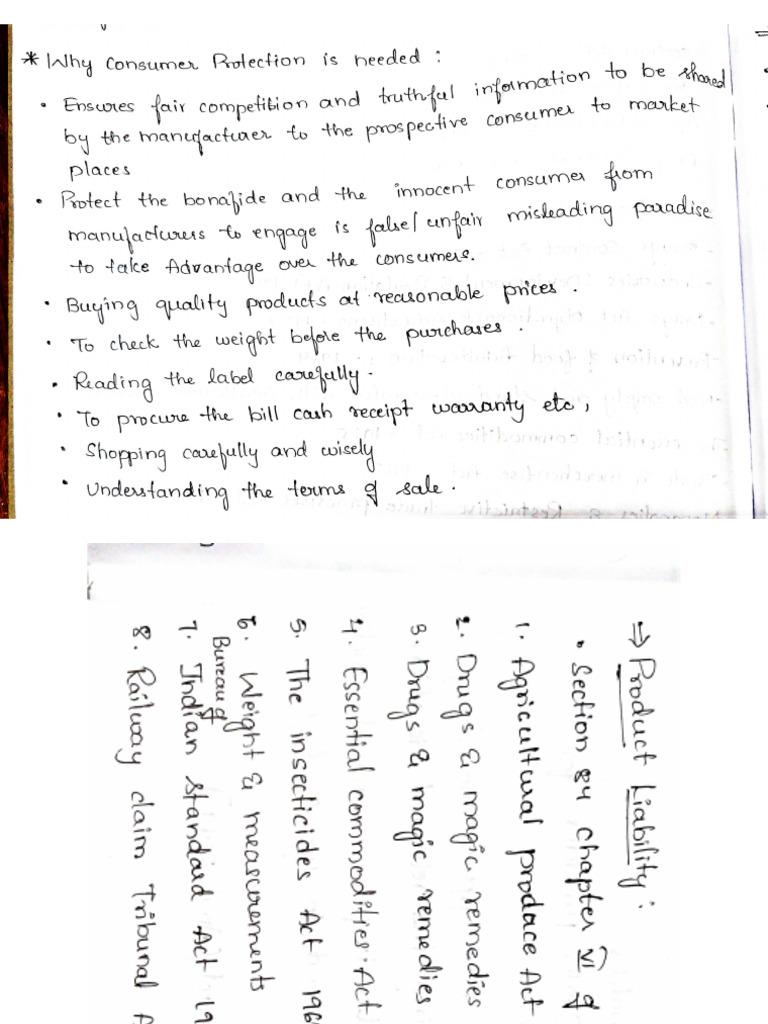 * Why Consumer Protection is needed :
• Ensures fair competition and truthful information to be shared
by the manufacturer to the prospective consumer to market
places
• Protect the bonafide and the innocent consumer from
manufacturers to engage is false/unfair misleading paradise
to take Advantage over the consumers.
• Buying quality products at reasonable prices.
• To check the weight before the purchases.
• Reading the label carefully.
• To procure the bill cash receipt warranty etc,
• Shopping carefully and wisely
• Understanding the terms of sale.
⇒ Product Liability :
• Section 84 chapter VI of
1. Agricultural produce Act
2. Drugs & magic remedies
3. Drugs & magic remedies
4. Essential commodities Act
5. The insecticides Act 196
6. Weight & measurements
Bureau of
7. Indian Standard Act 19
8. Railway claim Tribunal A